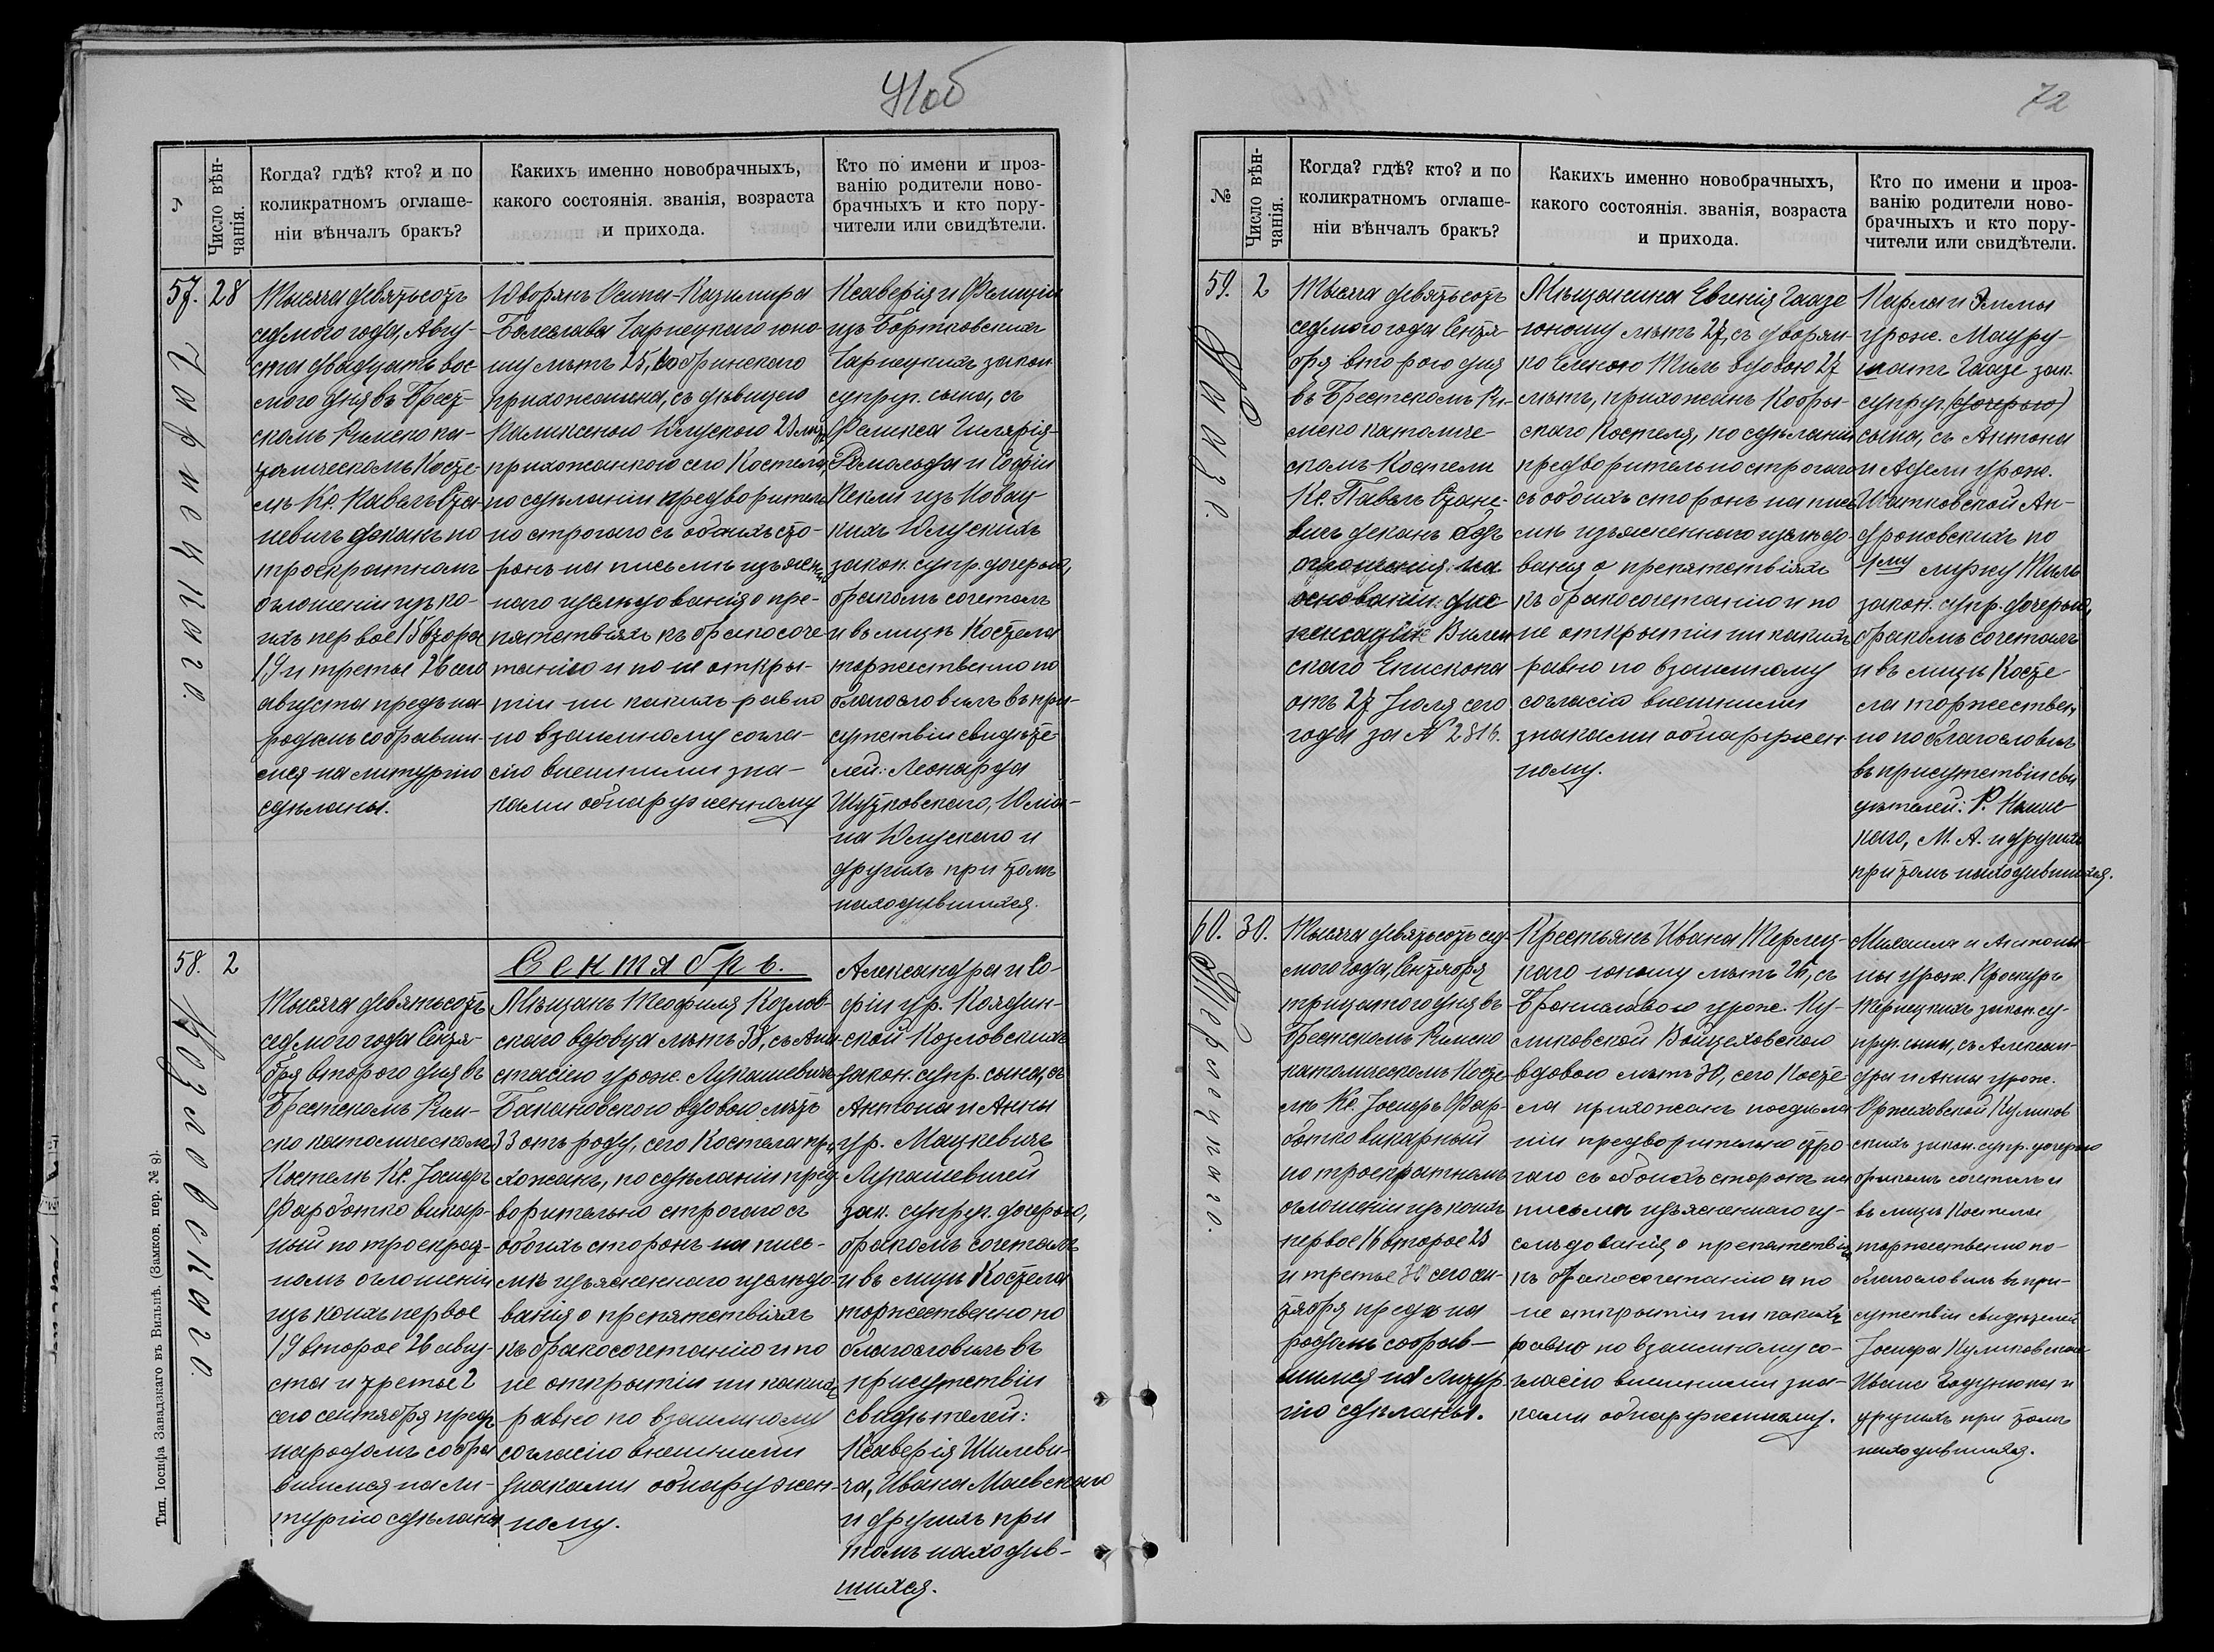 71об
№
Число вѣн-
чанія.
Когда? гдѣ? кто? и по
коликратномъ оглаше-
ніи вѣнчалъ бракъ?
Какихъ именно новобрачныхъ,
какого состоянія. званія, возраста
и прихода.
Кто по имени и проз-
ванію родители ново-
брачныхъ и кто пору-
чители или свидѣтели.
57.
28
Чарнецкаго.
Тысяча девятьсотъ
седмого года, Авгу-
ста двадцать вос-
мого дня въ Брест-
скомъ Римско ка-
толическомъ Косте-
лѣ Кс. Павелъ Ста-
невичъ деканъ по
троекратномъ
оглошеніи изъ ко-
ихъ первое 15 второе
19 и третье 26 сего
августа предъ на-
родомъ собравши-
мся на литургію
сдѣланы.
Дворянъ Осипа-Казимира
Болеслава Чарнецкаго юно-
шу лѣтъ 25, Кобринскаго
прихожанина, съ дѣвицею
Каликсеною Длускою 23 лѣтъ
прихожанкою сего Костела,
по сдѣланіи предворитель
но строгаго съ обоихъ сто-
ронъ на письмѣ изъяснен
наго изслѣдованія о пре-
пятствіяхъ къ бракосоче
танію и по не откры-
тіи ни какихъ равно
по взаимному согла-
сію внешними зна-
ками обнаруженному
Ксаверія и Фелиціи
изъ Бортковскихъ
Чарнецкихъ закон.
супруг. сына, съ
Феликса Гилярія-
Ромольда и Софіи
Текли изъ Новац-
кихъ Длускихъ
закон. супр. дочерью,
бракомъ сочеталъ
и въ лицѣ Костела
торжественно по
благословилъ въ при-
сутствіи свидѣте-
лей: Леонарда
Шутковскаго, Юлiа-
на Длускаго и
другихъ при томъ
находившихся.
58.
2
Козловскаго.
Сентябрь.
Тысяча девятьсотъ
седмого года Сентя-
бря второго дня въ
Брестскомъ Рим-
ско католическомъ
Костелѣ Кс. Іосифъ
Фарботко викар-
ный по троекрат-
номъ оглошеніи
изъ коихъ первое
19 второе 26 авгу-
ста и третье 2
сего сентября предъ
народомъ собра
вшимся на ли-
тургію сдѣланы
Мѣщанъ Теофиля Козлов-
скаго вдовца лѣтъ 38, съ Ана-
стасіею урож. Лукашевичъ
Бакановскою вдовою лѣтъ
33 отъ роду, сего Костела при
хожанъ, по сдѣланіи пред-
ворительно строгаго съ
обоихъ сторонъ на пись-
мѣ изъясненнаго изслѣдо
ванія о препятствіяхъ
къ бракосочетанію и по
не открытіи ни какихъ
равно по взаимному
согласію внешними
знаками обнаружен-
ному.
Александра и Со-
фіи ур. Колдин-
ской Козловскихъ
закон. супр. сына, съ
Антона и Анны
ур. Мацкевичъ
Лукашевичей
зак. супруг. дочерью,
бракомъ сочеталъ
и въ лицѣ Костела
торжественно по
благословилъ въ
присутствіи
свидѣтелей:
Ксаверія Шилеви-
ча, Ивана Маевскаго
и другихъ при
томъ находив-
шихся.
Тип. Іосифа Завадзкаго въ Вильнѣ. (Замков. пер. № 8).
72
№
Число вѣн-
чанія.
Когда? гдѣ? кто? и по
коликратномъ оглаше-
ніи вѣнчалъ бракъ?
Какихъ именно новобрачныхъ,
какого состоянія. званія, возраста
и прихода.
Кто по имени и проз-
ванію родители ново-
брачныхъ и кто пору-
чители или свидѣтели.
59.
2
Тысяча девятьсотъ
седмого года Сентя-
бря второго дня
въ Брестскомъ Ри-
мско католиче-
скомъ Костели
Кс. Павелъ Стане-
вичъ деканъ безъ
оглошенія на
основаніи: дис
пенсаціи Вилен
скаго Епископа
отъ 27 Іюля сего
года за № 2816.
Мѣщанина Евгенія Гаазе
юношу лѣтъ 27, съ дворян-
ко Еленою Тиль вдовою 27
лѣтъ, прихожанъ Кобрин
скаго Костела, по сдѣланіи
предворительно строгаго
съ обоихъ сторонъ на пись
мѣ изъясненнаго изслѣдо-
ванія о препятствіяхъ
къ бракосочетанію и по
не открытіи ни какихъ
равно по взаимному
согласію внешними
знаками обнаружен-
ному.
Карла и Эммы
урож. Мауру-
шатъ Гаазе зак.
супруг. (дочерью)
сына, съ Антона
и Адели урож.
Шатковской Ан-
дроновскихъ по
1му мужу Тиль
закон. супр. дочерью,
бракомъ сочеталъ
и въ лицѣ Косте-
ла торжествен
но поблагословилъ
въ присутствіи сви
дѣтелей: Р.
каго, М. А. и другихъ
при томъ находившихся.
60.
30.
Терлецкаго.
Тысяча девятьсотъ сед-
мого года, Сентября
тридцатого дня въ
Брестскомъ Римско
католическомъ Косте-
лѣ Кс. Іосифъ Фар-
ботко викарный
по троекратномъ
оглошеніи изъ коихъ
первое 16 второе 23
и третье 30 сего сен-
тября предъ на
родомъ собрав-
шимся на литур
гію сдѣланы.
Крестьянъ Ивана Терлец-
каго юношу лѣтъ 26, съ
Брониславою урож. Ку-
ликовской Войцеховскою
вдовою лѣтъ 30, сего Косте
ла прихожанъ посдѣла
ніи предворительно стро
гаго съ обоихъ сторонъ на
письмѣ изъясненнаго из-
слѣдованія о препятствіяхъ
къ бракосочетанію и по
не открытіи ни какихъ
равно по взаимному со-
гласію внешними зна-
ками обнаруженному.
Михаила и Антони-
ны урож. Проскуръ
Терлецкихъ закон. су-
пруг. сына, съ Алексан-
дра и Анны урож.
Оржеховской Куликов
скихъ закон. супр. дочерью
бракомъ сочеталъ и
въ лицѣ Костела
торжественно по-
благословилъ въ при-
сутствіи свидѣтелей
Іосифа Куликовскаго
Ивана и
другихъ при томъ
находившихся.